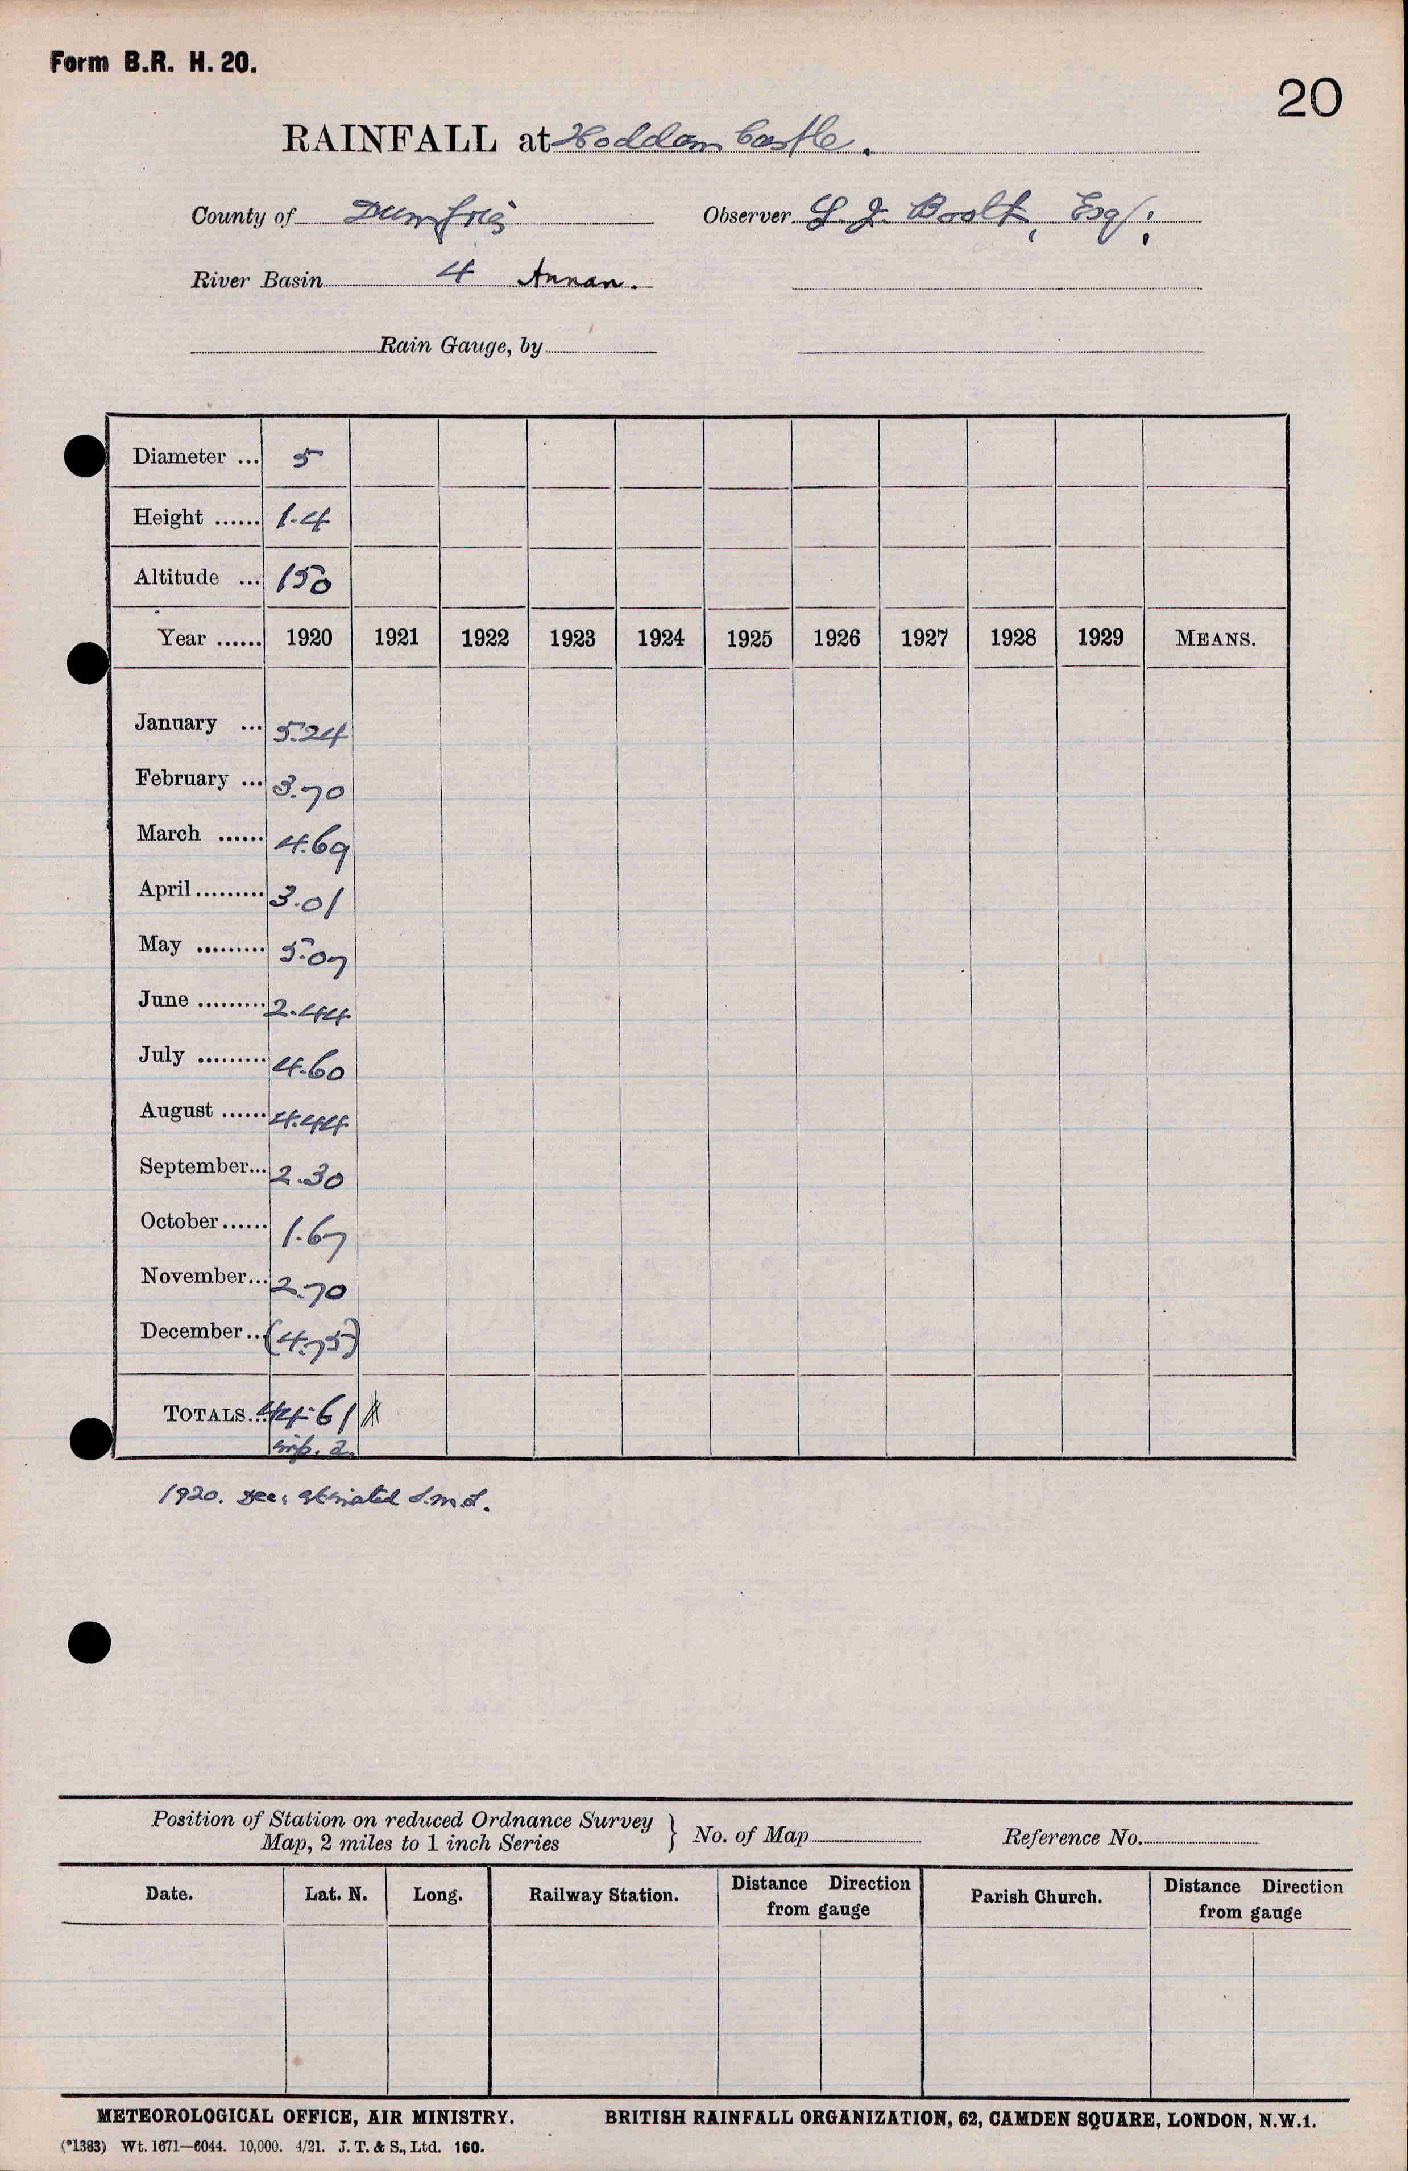 Form B.R. H. 20.
20
RAINFALL at Hoddam Castle.
County of Dumfries Observer Esq.
River Basin 4 Annan.
Rain Gauge, by
Diameter ... 5
Height ...... 1.4
Altitude ... 150
Year ...... 1920 1921 1922 1923 1924 1925 1926 1927 1928 1929 MEANS.
January ... 5.24
February ... 3.70
March ...... 4.69
April ......... 3.01
May ......... 5.07
June ......... 2.44
July ......... 4.60
August ...... 4.44
September... 2.30
October...... 1.67
November... 2.70
December... (4.75)
TOTALS... 44.61
1920. Dec. estimated
Position of Station on reduced Ordnance Survey
Map, 2 miles to 1 inch Series } No. of Map Reference No.
Date. Lat. N. Long. Railway Station. Distance Direction from gauge Parish Church. Distance Direction from gauge
METEOROLOGICAL OFFICE, AIR MINISTRY. BRITISH RAINFALL ORGANIZATION, 62, CAMDEN SQUARE, LONDON, N.W.1.
(*1383) Wt. 1671—6044. 10,000. 4/21. J. T. & S., Ltd. 160.